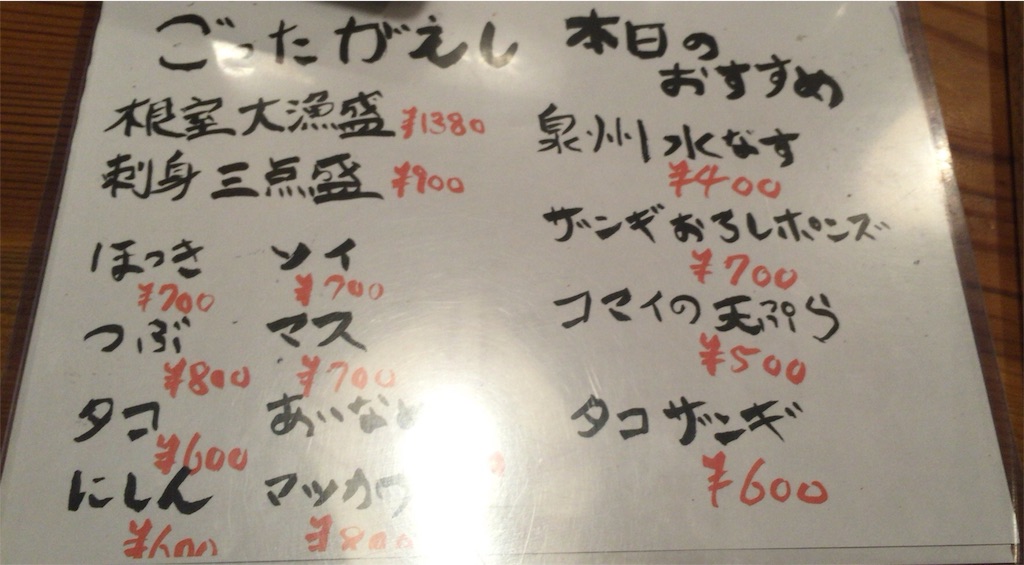 ごったがえし 本日の
おすすめ
根室大漁盛 ¥1380
刺身三点盛 ¥900
ほっき ソイ
¥700 ¥700
つぶ マス
¥800 ¥700
タコ あいなめ
¥600
にしん マツカワ
¥600 ¥800
泉州水なす
¥400
ザンギおろしポンズ
¥700
コマイの天ぷら
¥500
タコザンギ
¥600